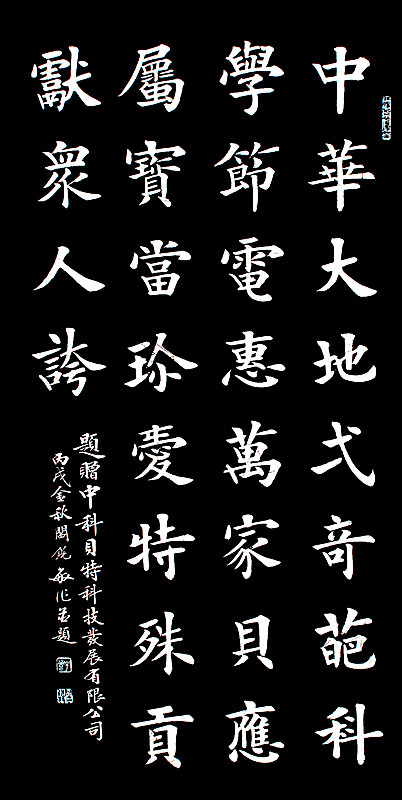 中華大地弌竒葩科
學節電惠萬家貝應
屬寶當珍愛特殊貢
獻衆人誇
題贈中科貝特科技發展有限公司
丙戌金秋閻銳敏作並題